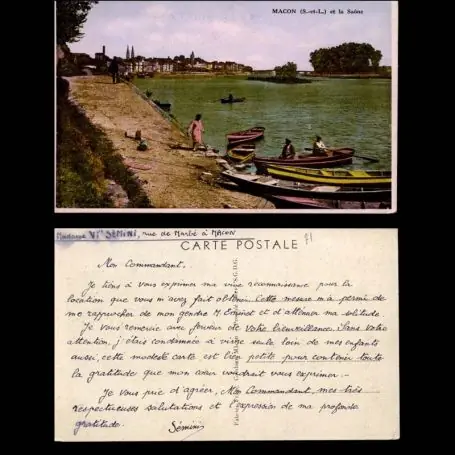 MACON (S.-et-L.) et la Saône
Madame Vve SEMINI, rue de Marbé à MACON
CARTE POSTALE
71
Mon Commandant,
Je tiens à vous exprimer ma vive reconnaissance pour la
location que vous m'avez fait obtenir. Cette mesure m'a permis de
me rapprocher de mon gendre M. et d'atténuer ma solitude.
Je vous remercie avec ferveur de votre bienveillance. Sans votre
attention, j'étais condamnée à vivre seule loin de mes enfants
aussi, cette modeste carte est bien petite pour contenir toute
la gratitude que mon cœur voudrait vous exprimer.-
Je vous prie d'agréer, Mon Commandant, mes très
respectueuses salutations et l'expression de ma profonde
gratitude.
Sémini